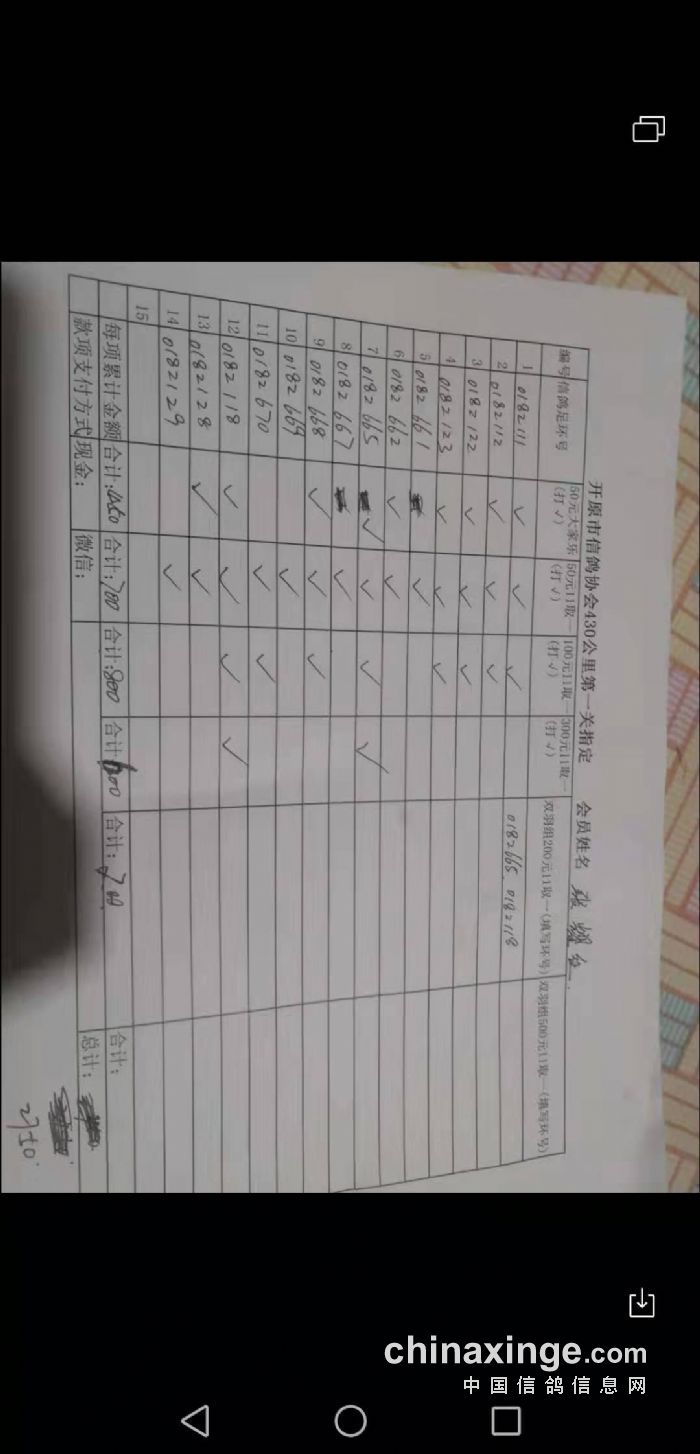 开原市信鸽协会430公里第一关指定 会员姓名
编号 信鸽足环号 50元大家乐(打√) 50元11取一(打√) 100元11取一(打√) 300元11取一(打√) 双羽组200元11取一(填写环号) 双羽组500元11取一(填写环号)
1 0182111 √ √ √ 0182665 0182118
2 0182112 √ √ √
3 0182122 √ √ √
4 0182123 √ √ √
5 0182661 √
6 0182662 √ √
7 0182665 √ √ √ √
8 0182667 √
9 0182668 √ √ √
10 0182669 √
11 0182670 √ √
12 0182118 √ √ √ √
13 0182128 √ √
14 0182129 √
15
每项累计金额 合计:450 合计:700 合计:800 合计:600 合计:200 合计:
款项支付方式 现金: 微信: 总计:
2750
chinaxinge.com
中国信鸽信息网